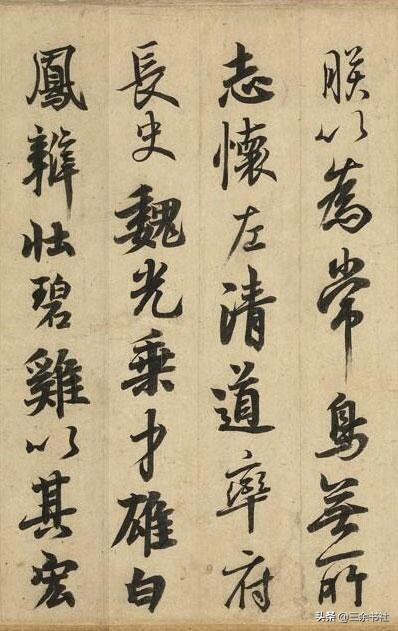 朕以為常鳥無所
志懷左清道率府
長史魏光乗才雄白
鳳辯壯碧雞以其宏
头条 @三余书社